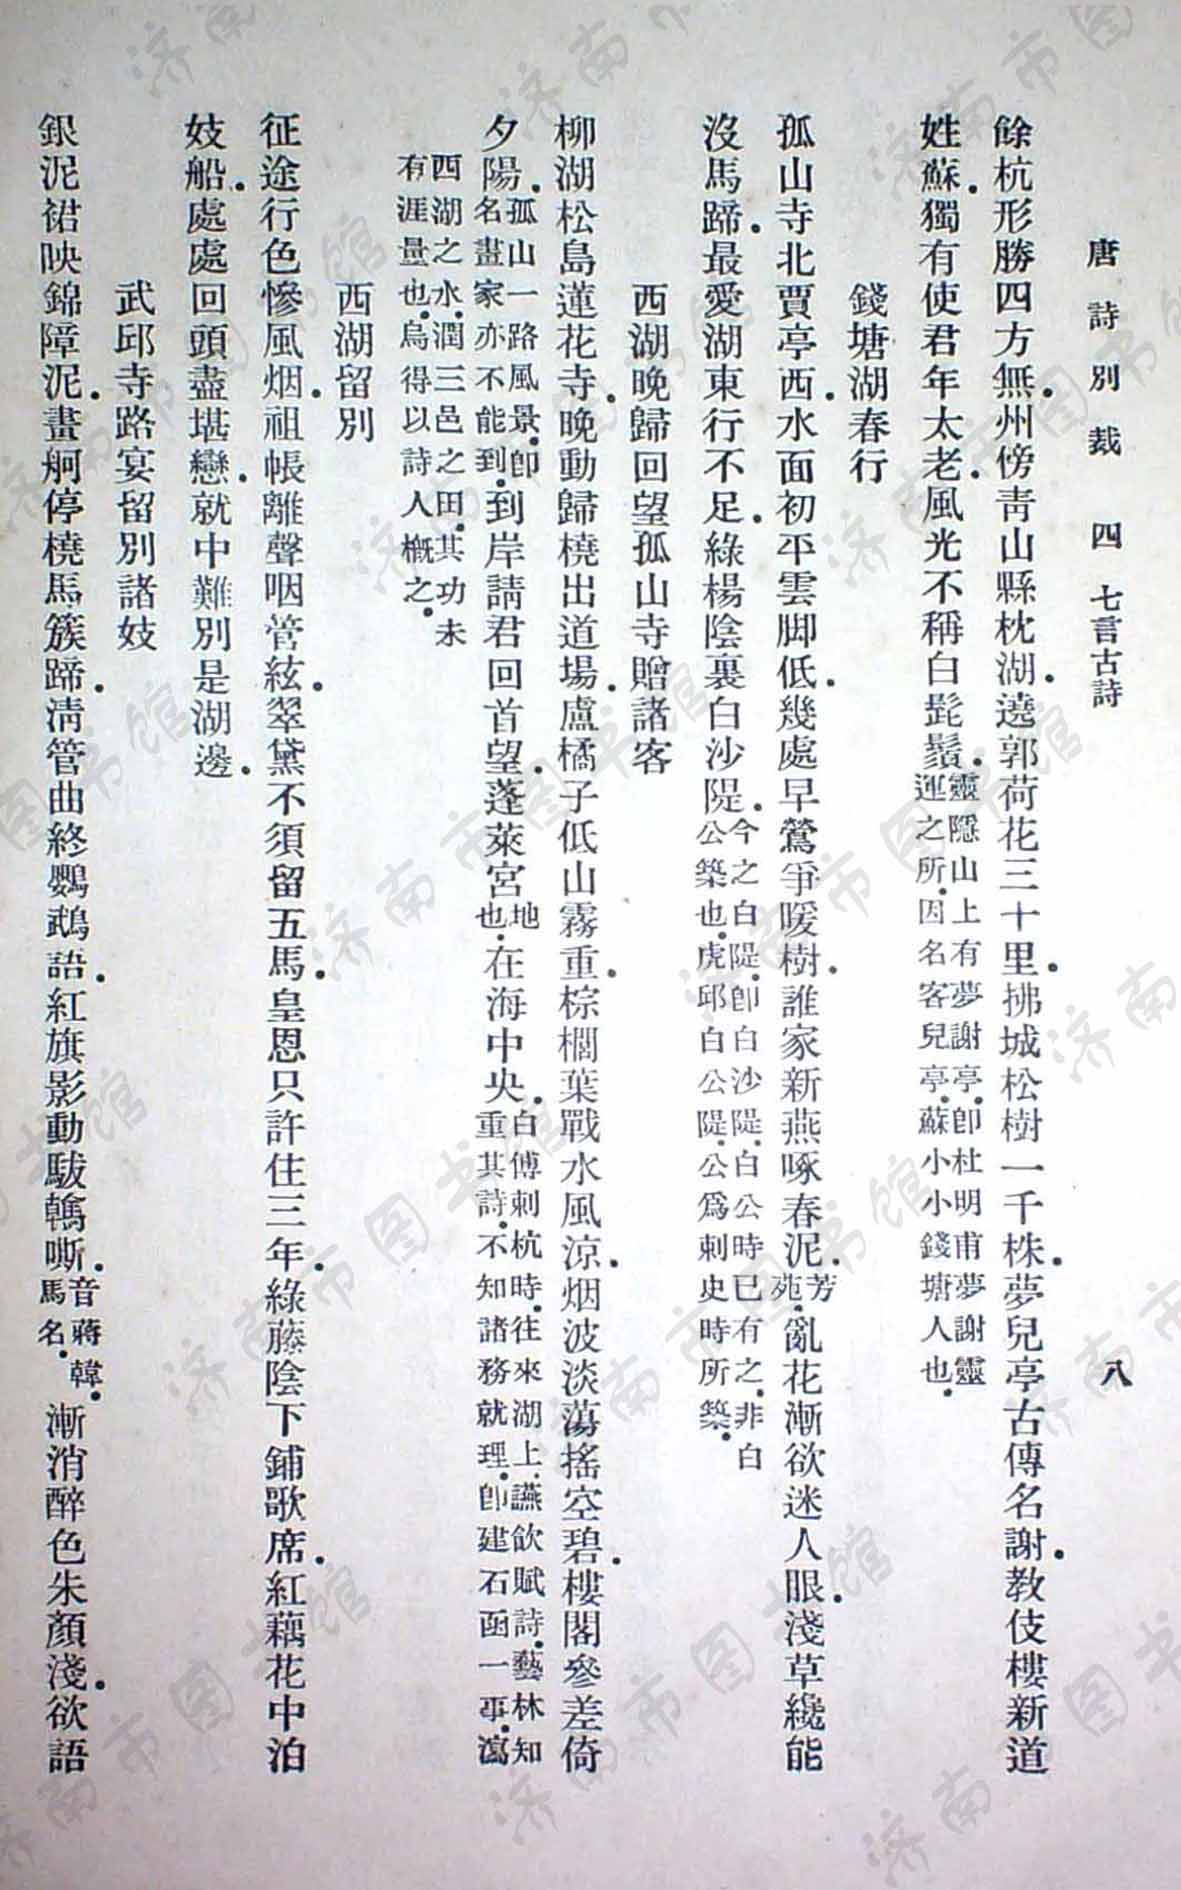 唐詩別裁 四 七言古詩 八
餘杭形勝四方無.州傍靑山縣枕湖.遶郭荷花三十里.拂城松樹一千株.夢兒亭古傳名謝.敎伎樓新道
姓蘇.獨有使君年太老.風光不稱白髭鬚.靈隱山上有夢謝亭.卽杜明甫夢謝靈運之所.因名客兒亭.蘇小小錢塘人也.
錢塘湖春行
孤山寺北賈亭西.水面初平雲脚低.幾處早鶯爭暖樹.誰家新燕啄春泥.芳苑.亂花漸欲迷人眼.淺草纔能
沒馬蹄.最愛湖東行不足.綠楊陰裏白沙隄.今之白隄.卽白沙隄.白公時已有之.非白公築也.虎邱白公隄.公爲刺史時所築.
西湖晚歸回望孤山寺贈諸客
柳湖松島蓮花寺.晚動歸橈出道場.盧橘子低山霧重.棕櫚葉戰水風涼.烟波淡蕩搖空碧.樓閣參差倚
夕陽.孤山一路風景.卽名畫家亦不能到.到岸請君回首望.蓬萊宮地也.在海中央.白傅刺杭時.往來湖上.讌飮賦詩.藝林知重其詩.不知諸務就理.卽建石函一事.瀉
西湖之水.潤三邑之田.其功未有涯量也.烏得以詩人槪之.
西湖留別
征途行色慘風烟.祖帳離聲咽管絃.翠黛不須留五馬.皇恩只許住三年.綠藤陰下鋪歌席.紅藕花中泊
妓船.處處回頭盡堪戀.就中難別是湖邊.
武邱寺路宴留別諸妓
銀泥裙映錦障泥.畫舸停橈馬簇蹄.淸管曲終鸚鵡語.紅旗影動駊䮧嘶.音薄韓.馬名.漸消醉色朱顏淺.欲語
济南市图书馆